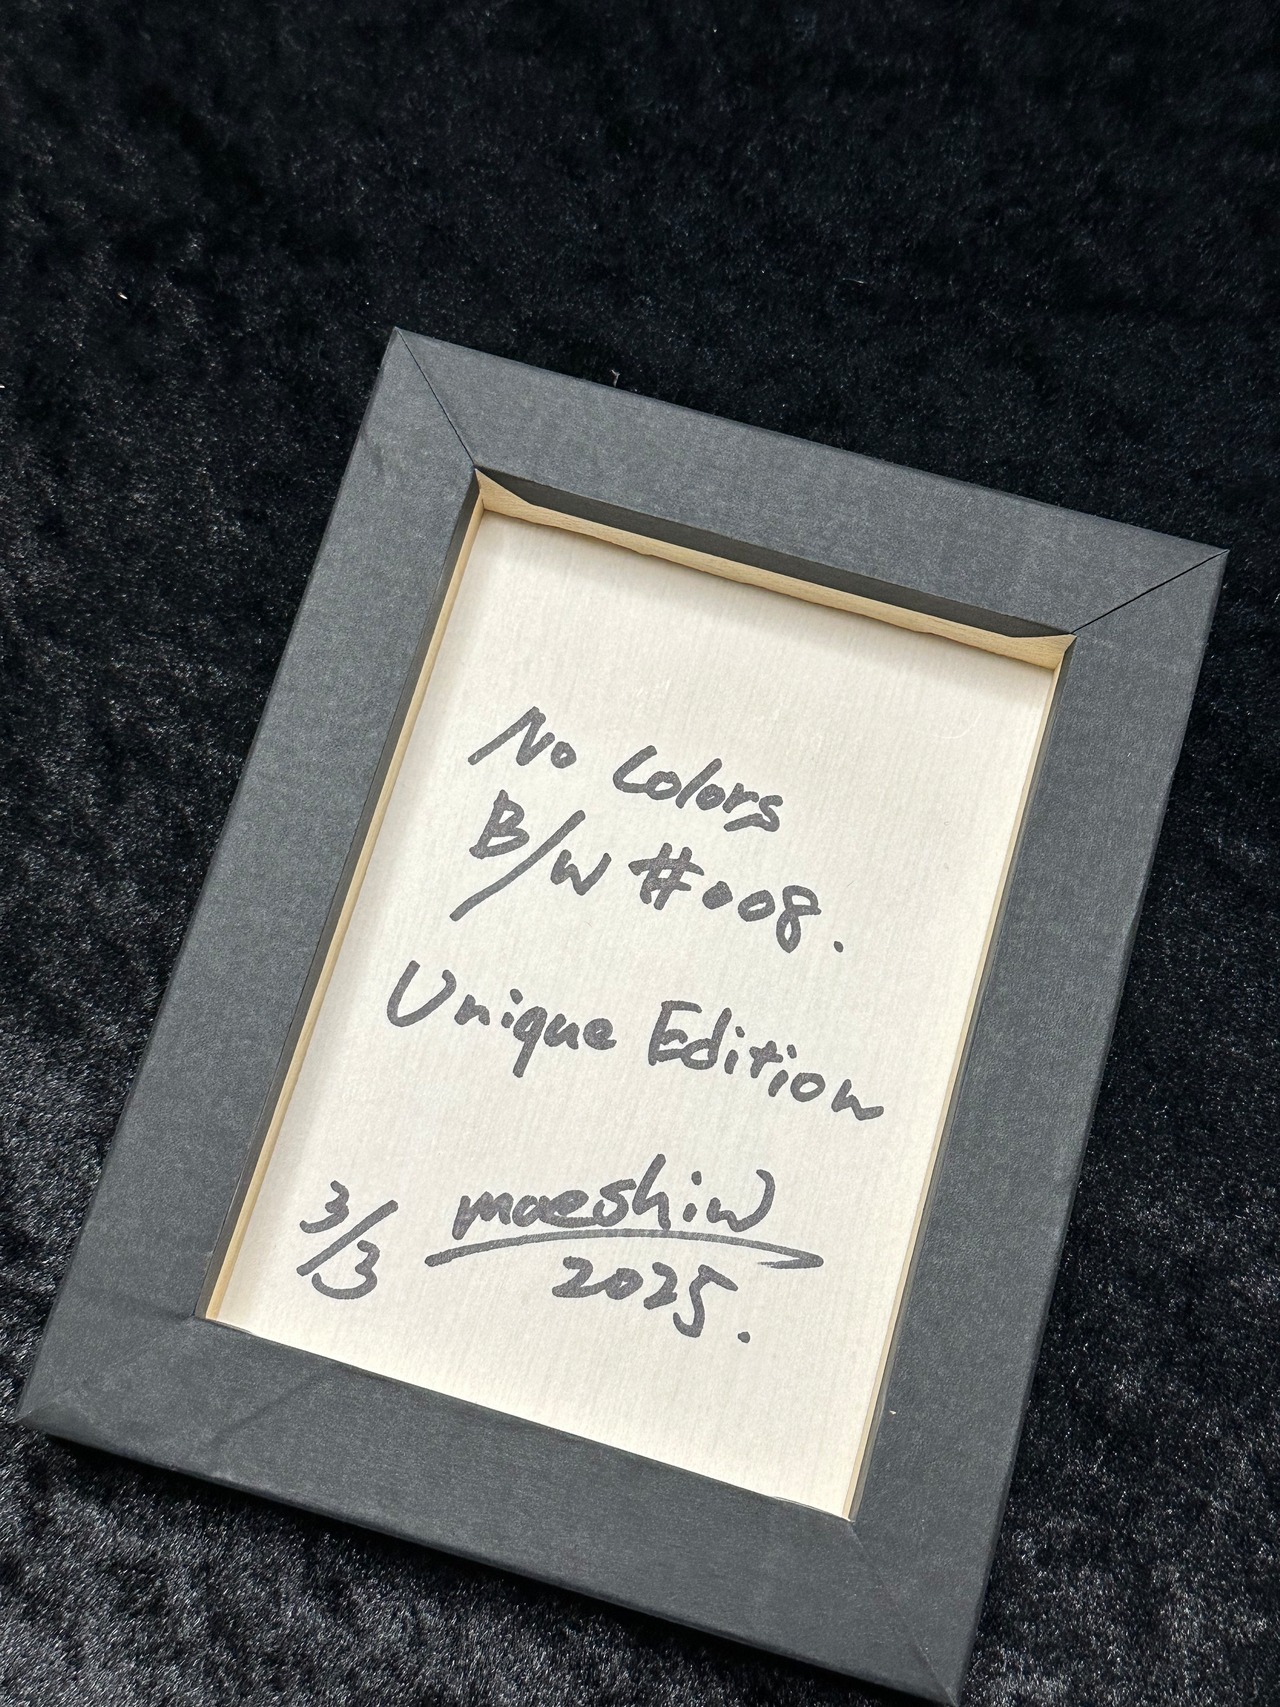 No Colors
B/W #008.
Unique Edition
3/3 maeshiw
2025.